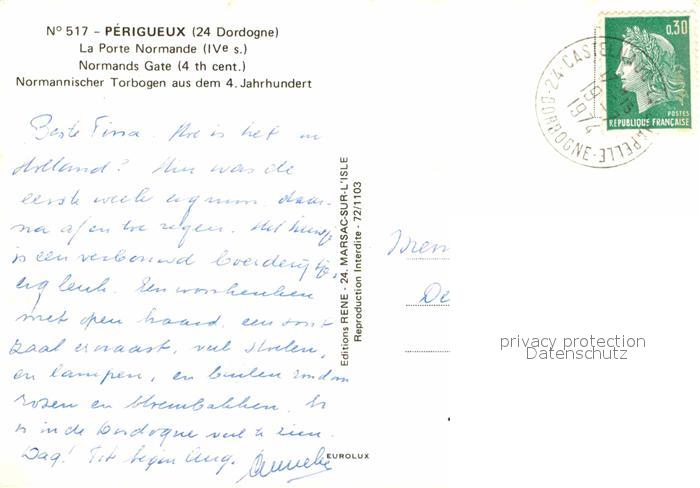 N° 517 - PÉRIGUEUX (24 Dordogne)
La Porte Normande (IVe s.)
Normands Gate (4 th cent.)
Normannischer Torbogen aus dem 4. Jahrhundert
Beste Tinra. Hoe is het in
Holland? Hier was de
eerste week erg mooi, daar-
na af en toe regen. Het huisje
is een verbouwd boerderijtje,
erg leuk. Een woonkeuken
met open haard, een soort
zaal ernaast, veel stoelen,
en lampen, en buiten rondom
rozen en bloembakken. Er
is in de Dordogne veel te zien.
Dag! Tot begin Aug. Anneke
Editions RENE - 24. MARSAC-SUR-L'ISLE
Reproduction Interdite - 72/1103
EUROLUX
0,30
POSTES
RÉPUBLIQUE FRANÇAISE
24 CASTELNAUD LA CHAPELLE
1974
DORDOGNE
De
privacy protection
Datenschutz